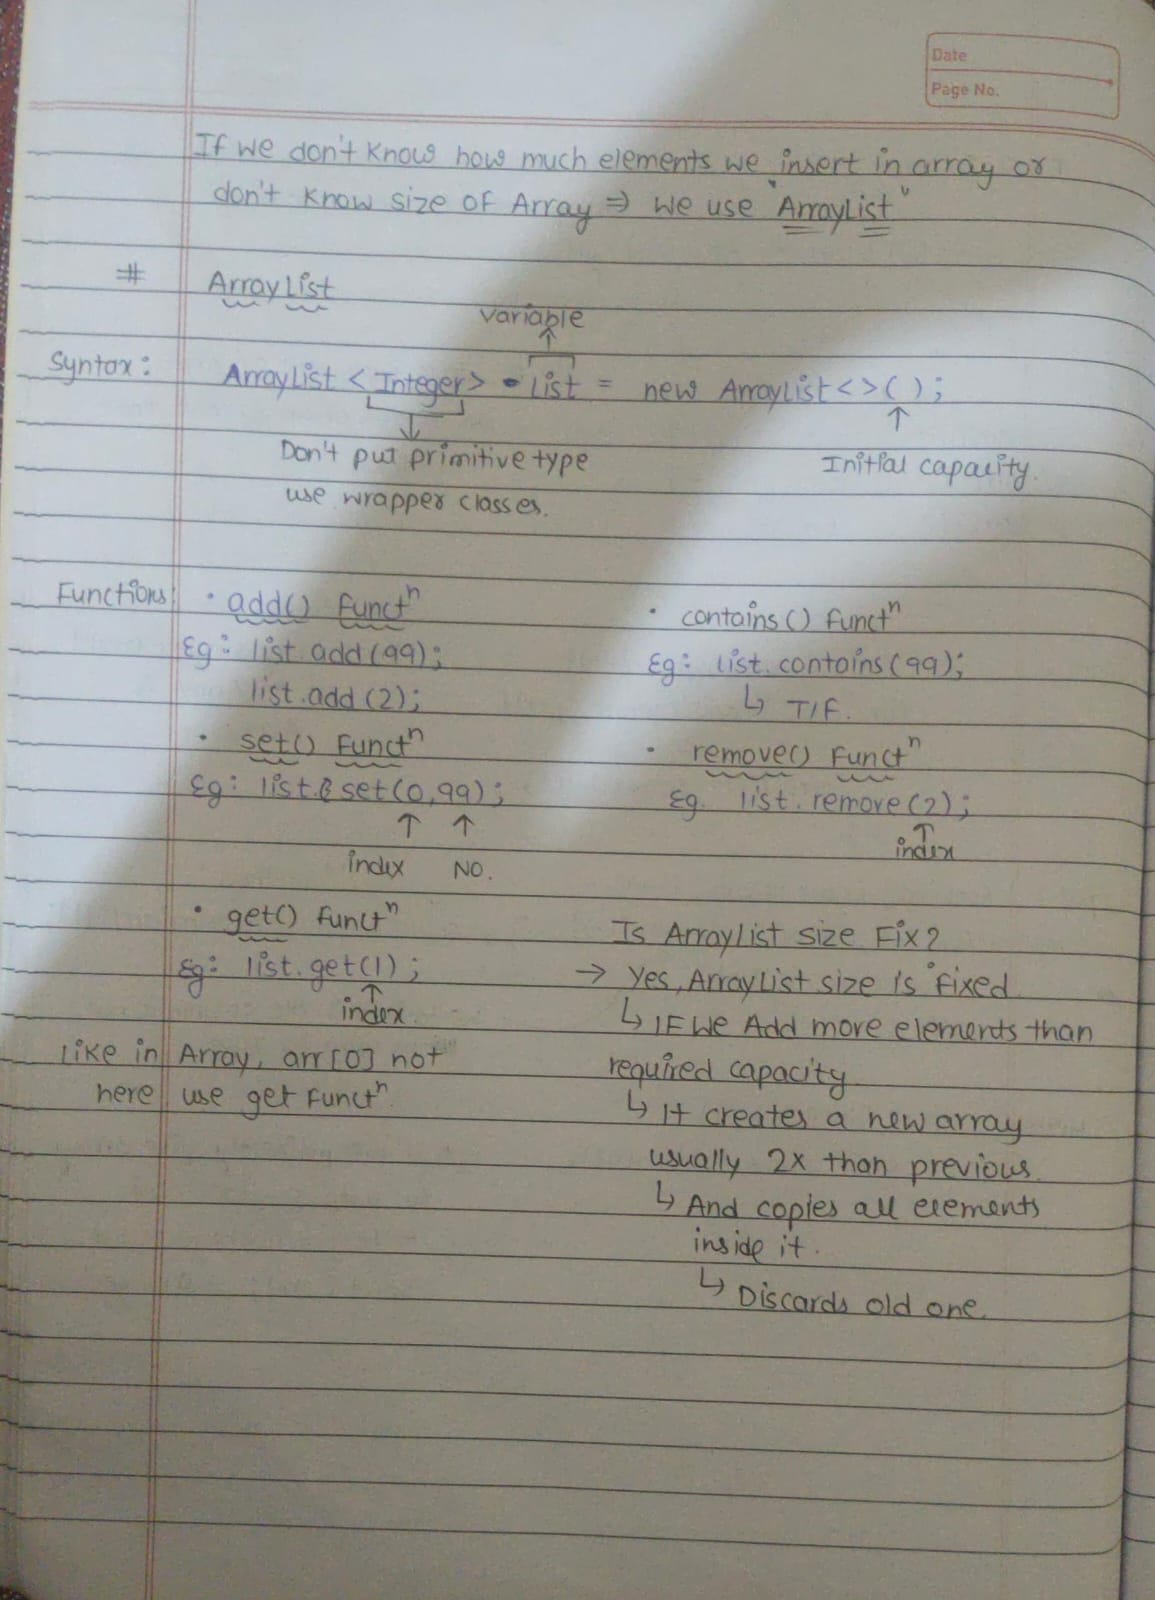 Date
Page No.
If we don't know how much elements we insert in array or
don't know size of Array ⇒ we use "ArrayList"
# ArrayList
variable
↑
Syntax: ArrayList <Integer> list = new ArrayList<>();
↓ ↑
Don't put primitive type
use wrapper classes.
Initial capacity.
Functions:
• add() Functⁿ
Eg: list.add(99);
list.add(2);
• set() Functⁿ
Eg: list.set(0,99);
↑ ↑
index No.
• get() Functⁿ
Eg: list.get(1);
↑
index
Like in Array, arr[0] not
here use get Functⁿ
• contains() Functⁿ
Eg: list.contains(99);
↳ T/F.
• remove() Functⁿ
Eg. list.remove(2);
↑
index
Is ArrayList size Fix?
→ Yes, ArrayList size is fixed
↳ IF we Add more elements than
required capacity
↳ It creates a new array
usually 2x than previous.
↳ And copies all elements
inside it.
↳ Discards old one.